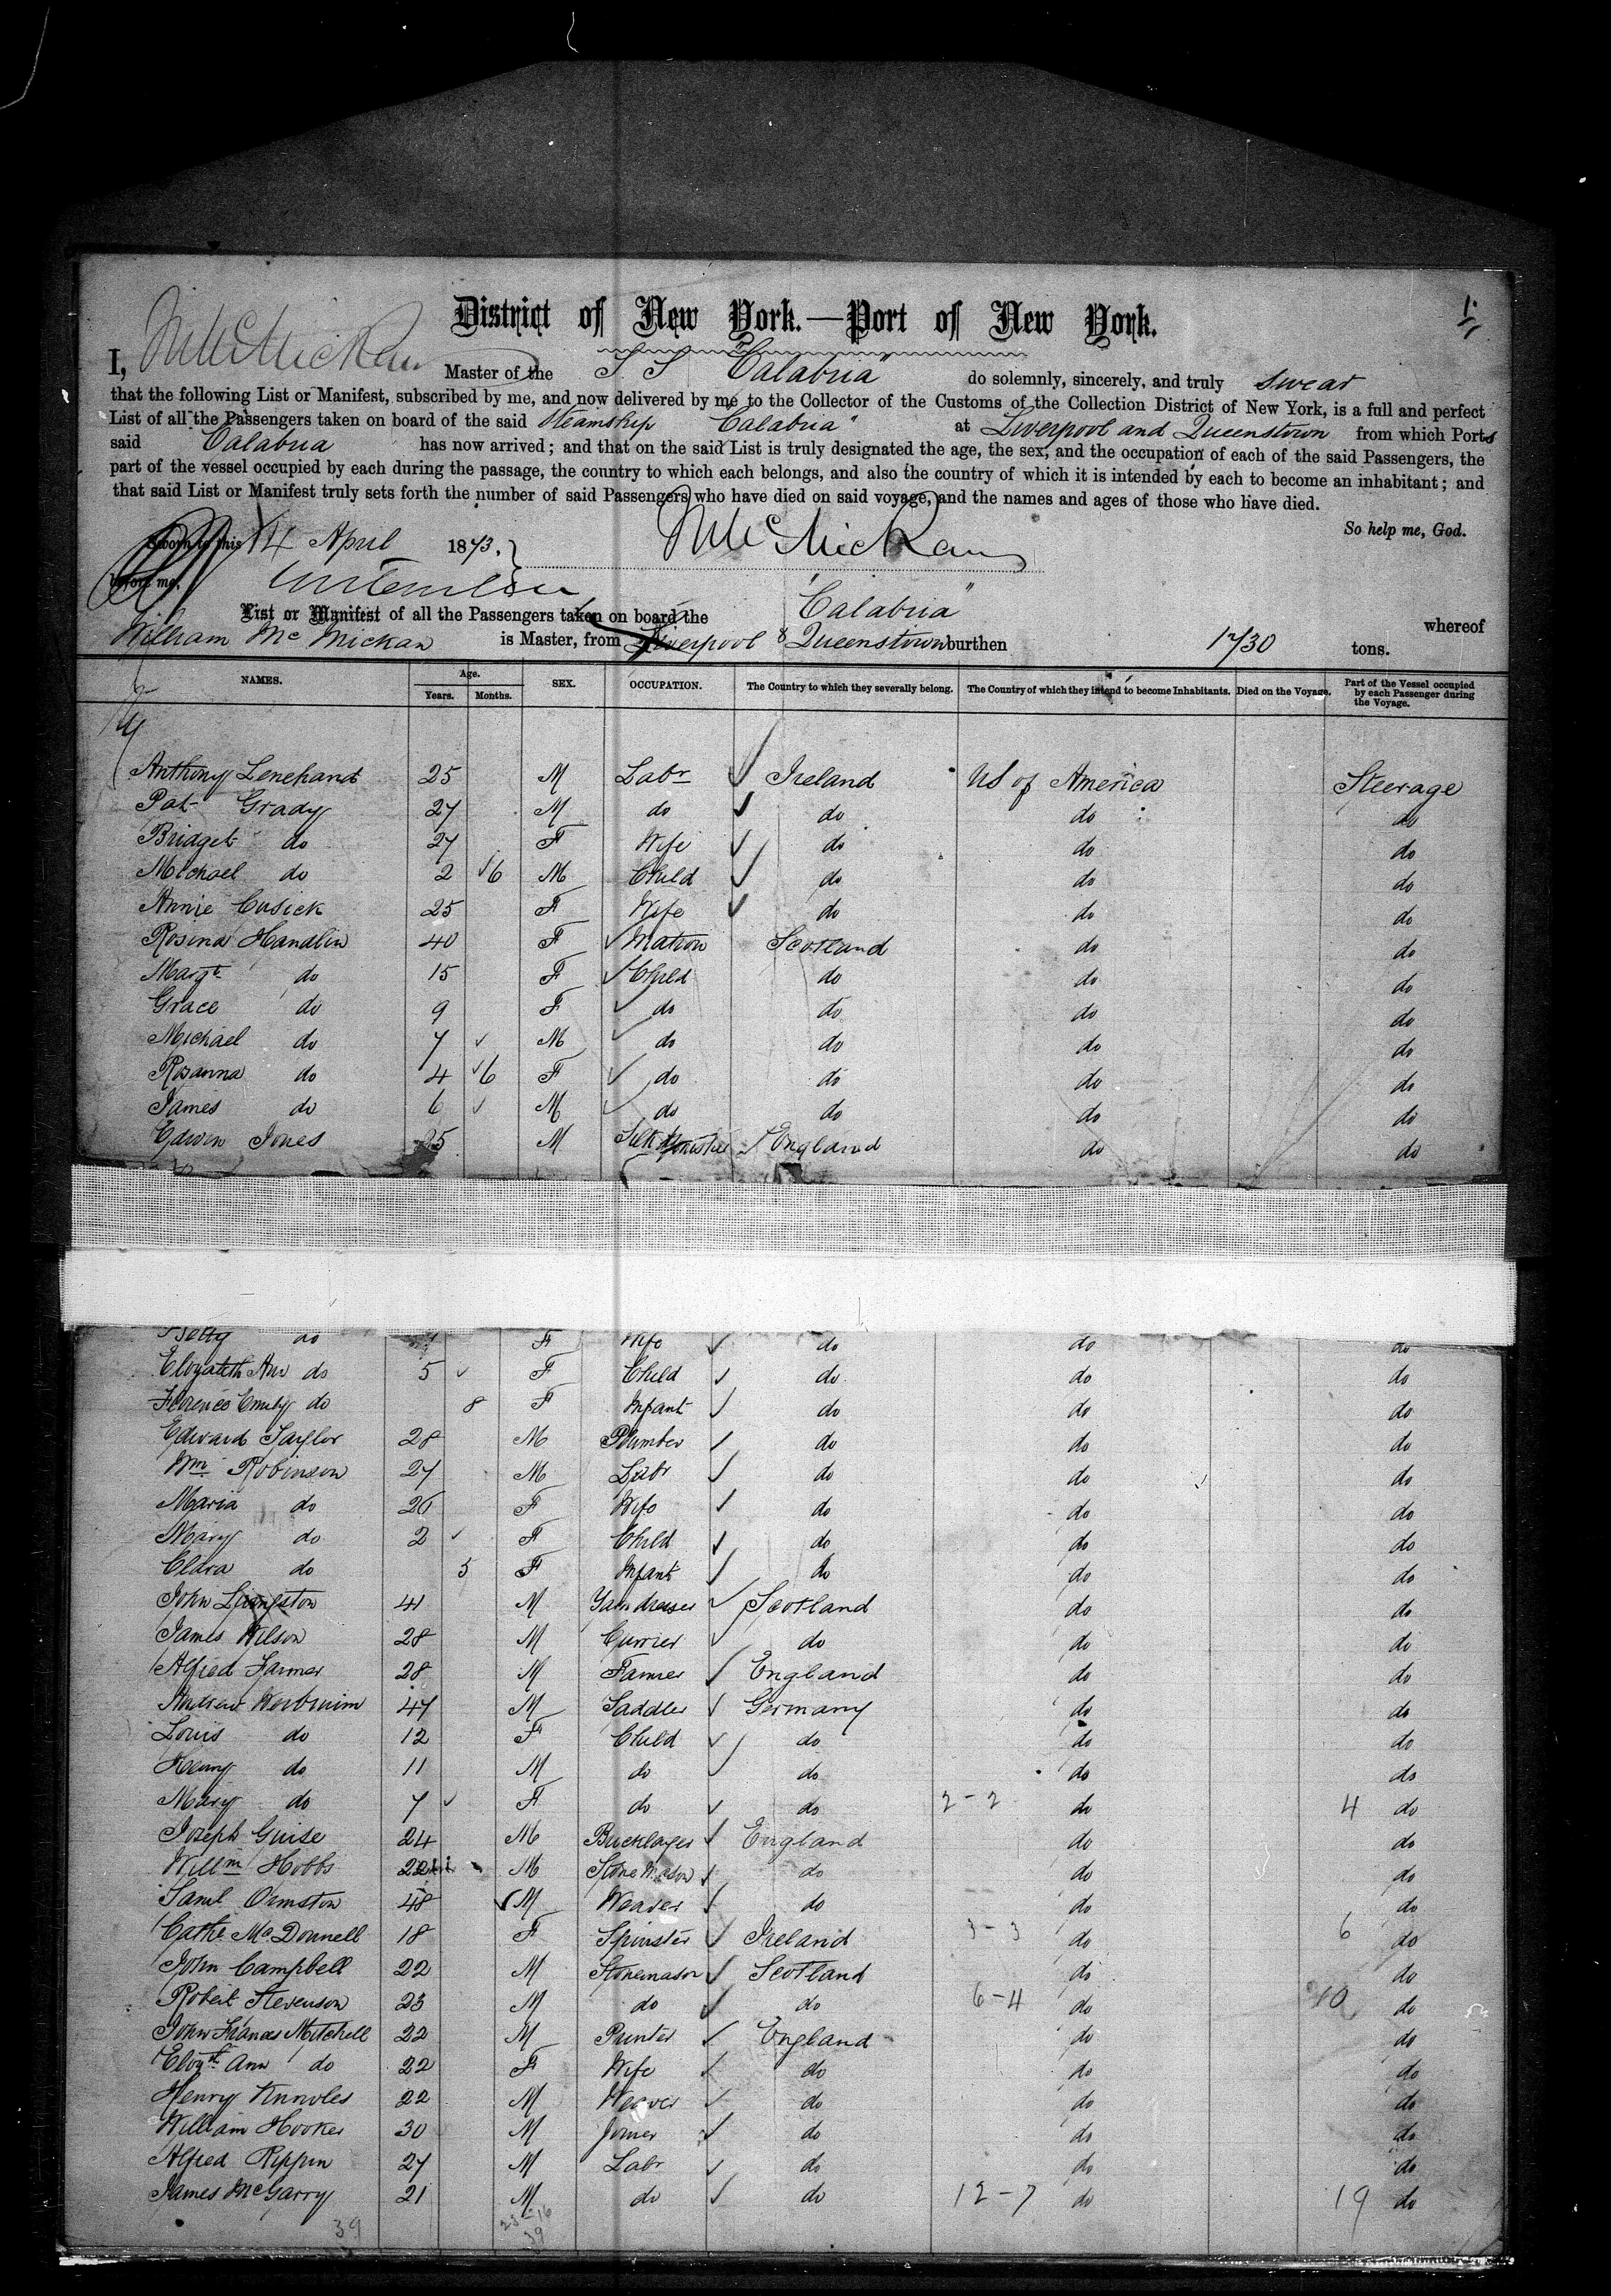 District of New York.—Port of New York.
1
I, Master of the S S "Calabria" do solemnly, sincerely, and truly swear
that the following List or Manifest, subscribed by me, and now delivered by me to the Collector of the Customs of the Collection District of New York, is a full and perfect
List of all the Passengers taken on board of the said Steamship "Calabria" at Liverpool and Queenstown from which Ports
said "Calabria" has now arrived; and that on the said List is truly designated the age, the sex, and the occupation of each of the said Passengers, the
part of the vessel occupied by each during the passage, the country to which each belongs, and also the country of which it is intended by each to become an inhabitant; and
that said List or Manifest truly sets forth the number of said Passengers who have died on said voyage, and the names and ages of those who have died.
So help me, God.
Sworn to this 14 April 1873. McMickan
before me,
List or Manifest of all the Passengers taken on board the "Calabria" whereof
William Mc Mickan is Master, from Liverpool & Queenstown burthen 1730 tons.
NAMES. Age. Years. Months. SEX. OCCUPATION. The Country to which they severally belong. The Country of which they intend to become Inhabitants. Died on the Voyage. Part of the Vessel occupied by each Passenger during the Voyage.
Anthony Lenehand 25 M Labr Ireland US of America Steerage
Pat Grady 27 M do do do do
Bridget do 27 F Wife do do do
Michael do 2 6 M Child do do do
Annie Cusick 25 F Wife do do do
Rosina Handlin 40 F Matron Scotland do do
Margt do 15 F Child do do do
Grace do 9 F do do do do
Michael do 7 M do do do do
Rosanna do 4 6 F do do do do
James do 6 M do do do do
Edwin Jones 25 M Silk England do do
Betty do F Wife do do do
Elizabeth Ann do 5 F Child do do do
Florence Emily do 8 F Infant do do do
Edward Taylor 28 M Plumber do do do
Wm Robinson 27 M Labr do do do
Maria do 26 F Wife do do do
Mary do 2 F Child do do do
Clara do 5 F Infant do do do
John Livingston 41 M Yarn dresser Scotland do do
James Wilson 28 M Currier do do do
Alfred Farmer 28 M Farmer England do do
Andrew 47 M Saddler Germany do do
Louis do 12 F Child do do do
Henry do 11 M do do do do
Mary do 7 F do do 2-2 do 4 do
Joseph Guise 24 M Bricklayer England do do
Willm Hobbs 22 M Stone Mason do do do
Saml Ormston 48 M Weaver do do do
Cathe McDonnell 18 F Spinster Ireland 3-3 do 6 do
John Campbell 22 M Stonemason Scotland do do
Robert Stevenson 23 M do do 6-4 do 10 do
John Frances Mitchell 22 M Printer England do do
Elizth Ann do 22 F Wife do do do
Henry Knowles 22 M Weaver do do do
William Hooker 30 M Joiner do do do
Alfred Rippin 27 M Labr do do do
James McGarry 21 M do do 12-7 do 19 do
39 23-16
39